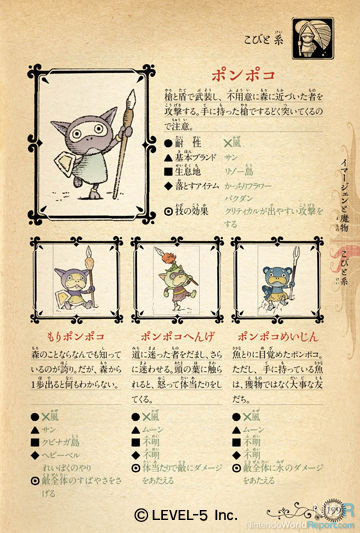 こびと系
ポンポコ
槍と盾で武装し、不用意に森に近づいた者を
攻撃する。手に持った槍でするどく突いてくるの
で注意。
●耐性 ×風
▲基本ブランド サン
■生息地 リゾー島
◆落とすアイテム かっぷりフラワー
バクダン
◎技の効果 クリティカルが出やすい攻撃を
する
イマージェンと魔物
こびと系
もりポンポコ
森のことならなんでも知って
いるのが誇り。だが、森から
1歩出ると何もわからない。
●×風
▲サン
■クビナガ島
◆ヘビーベル
れいぼくのやり
◎敵全体のすばやさをさ
げる
ポンポコへんげ
道に迷った者をだまし、さら
に迷わせる。頭の葉に触ら
れると、怒って体当たりをし
てくる。
●×風
▲ムーン
■不明
◆不明
◎体当たりで敵にダメージ
をあたえる
ポンポコめいじん
魚とりに目覚めたポンポコ。
ただし、手に持っている魚
は、獲物ではなく大事な友
だち。
●×風
▲ムーン
■不明
◆不明
◎敵全体に水のダメージ
をあたえる
© LEVEL-5 Inc.
NintendoWorldReport.com